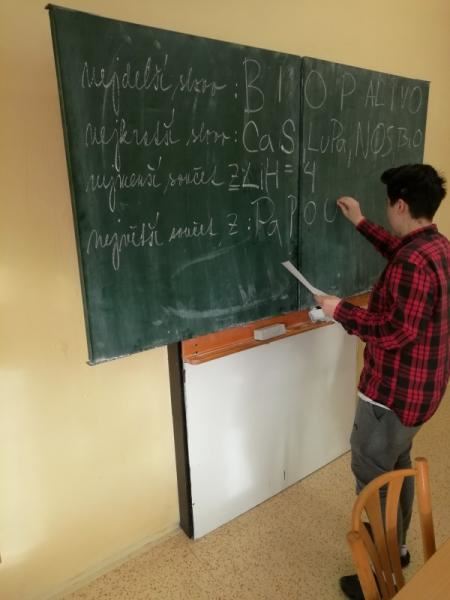 nejdelší slovo: B I O P AL I V O
nejkratší slovo: Ca S LuPa, N@S BiO
nejmenší součet Z LiH = 4
největší součet Z: Pa P O U